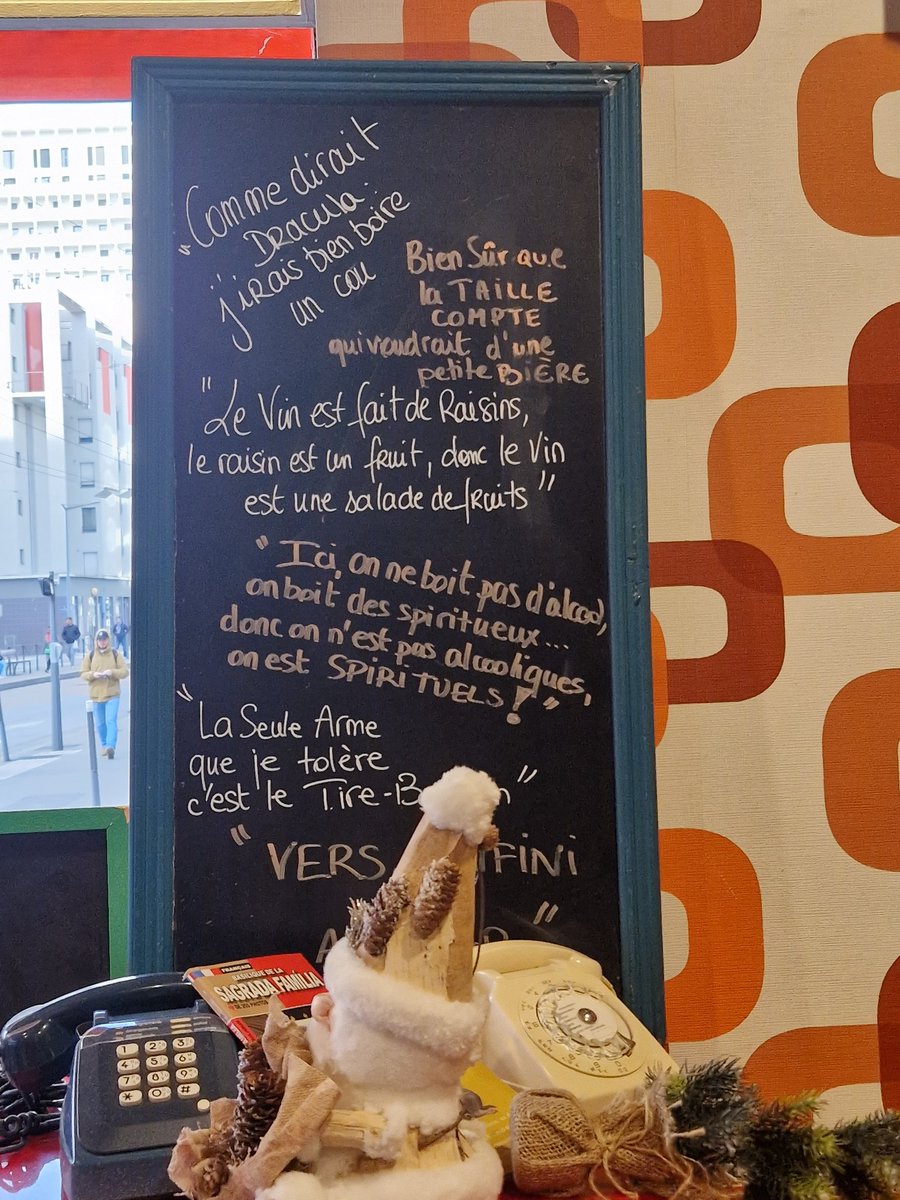 "Comme dirait
DRACULA.
j'irais bien boire
un cou
Bien Sûr que
la TAILLE
COMPTE
qui voudrait d'une
petite BIÈRE
"Le Vin est fait de Raisins,
le raisin est un fruit, donc le Vin
est une salade de fruits"
"Ici, on ne boit pas d'alcool,
on boit des spiritueux...
donc on n'est pas alcooliques,
on est SPIRITUELS!"
"La Seule Arme
que je tolère
c'est le Tire-B n"
"VERS FINI
"
FRANÇAIS
BASILIQUE DE LA
SAGRADA FAMÍLIA
1 2 3
4 5 6
7 8 9
* 0 #